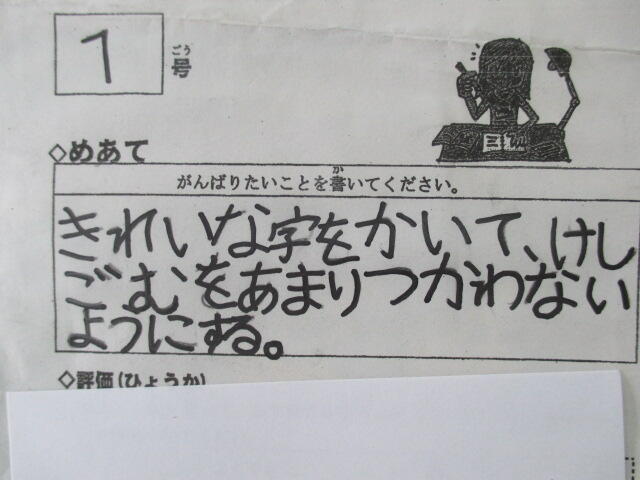 1
ごう
号
◇めあて
か
がんばりたいことを書いてください。
きれいな字をかいて、けし
ごむをあまりつかわない
ようにする。
◇評価(ひょうか)